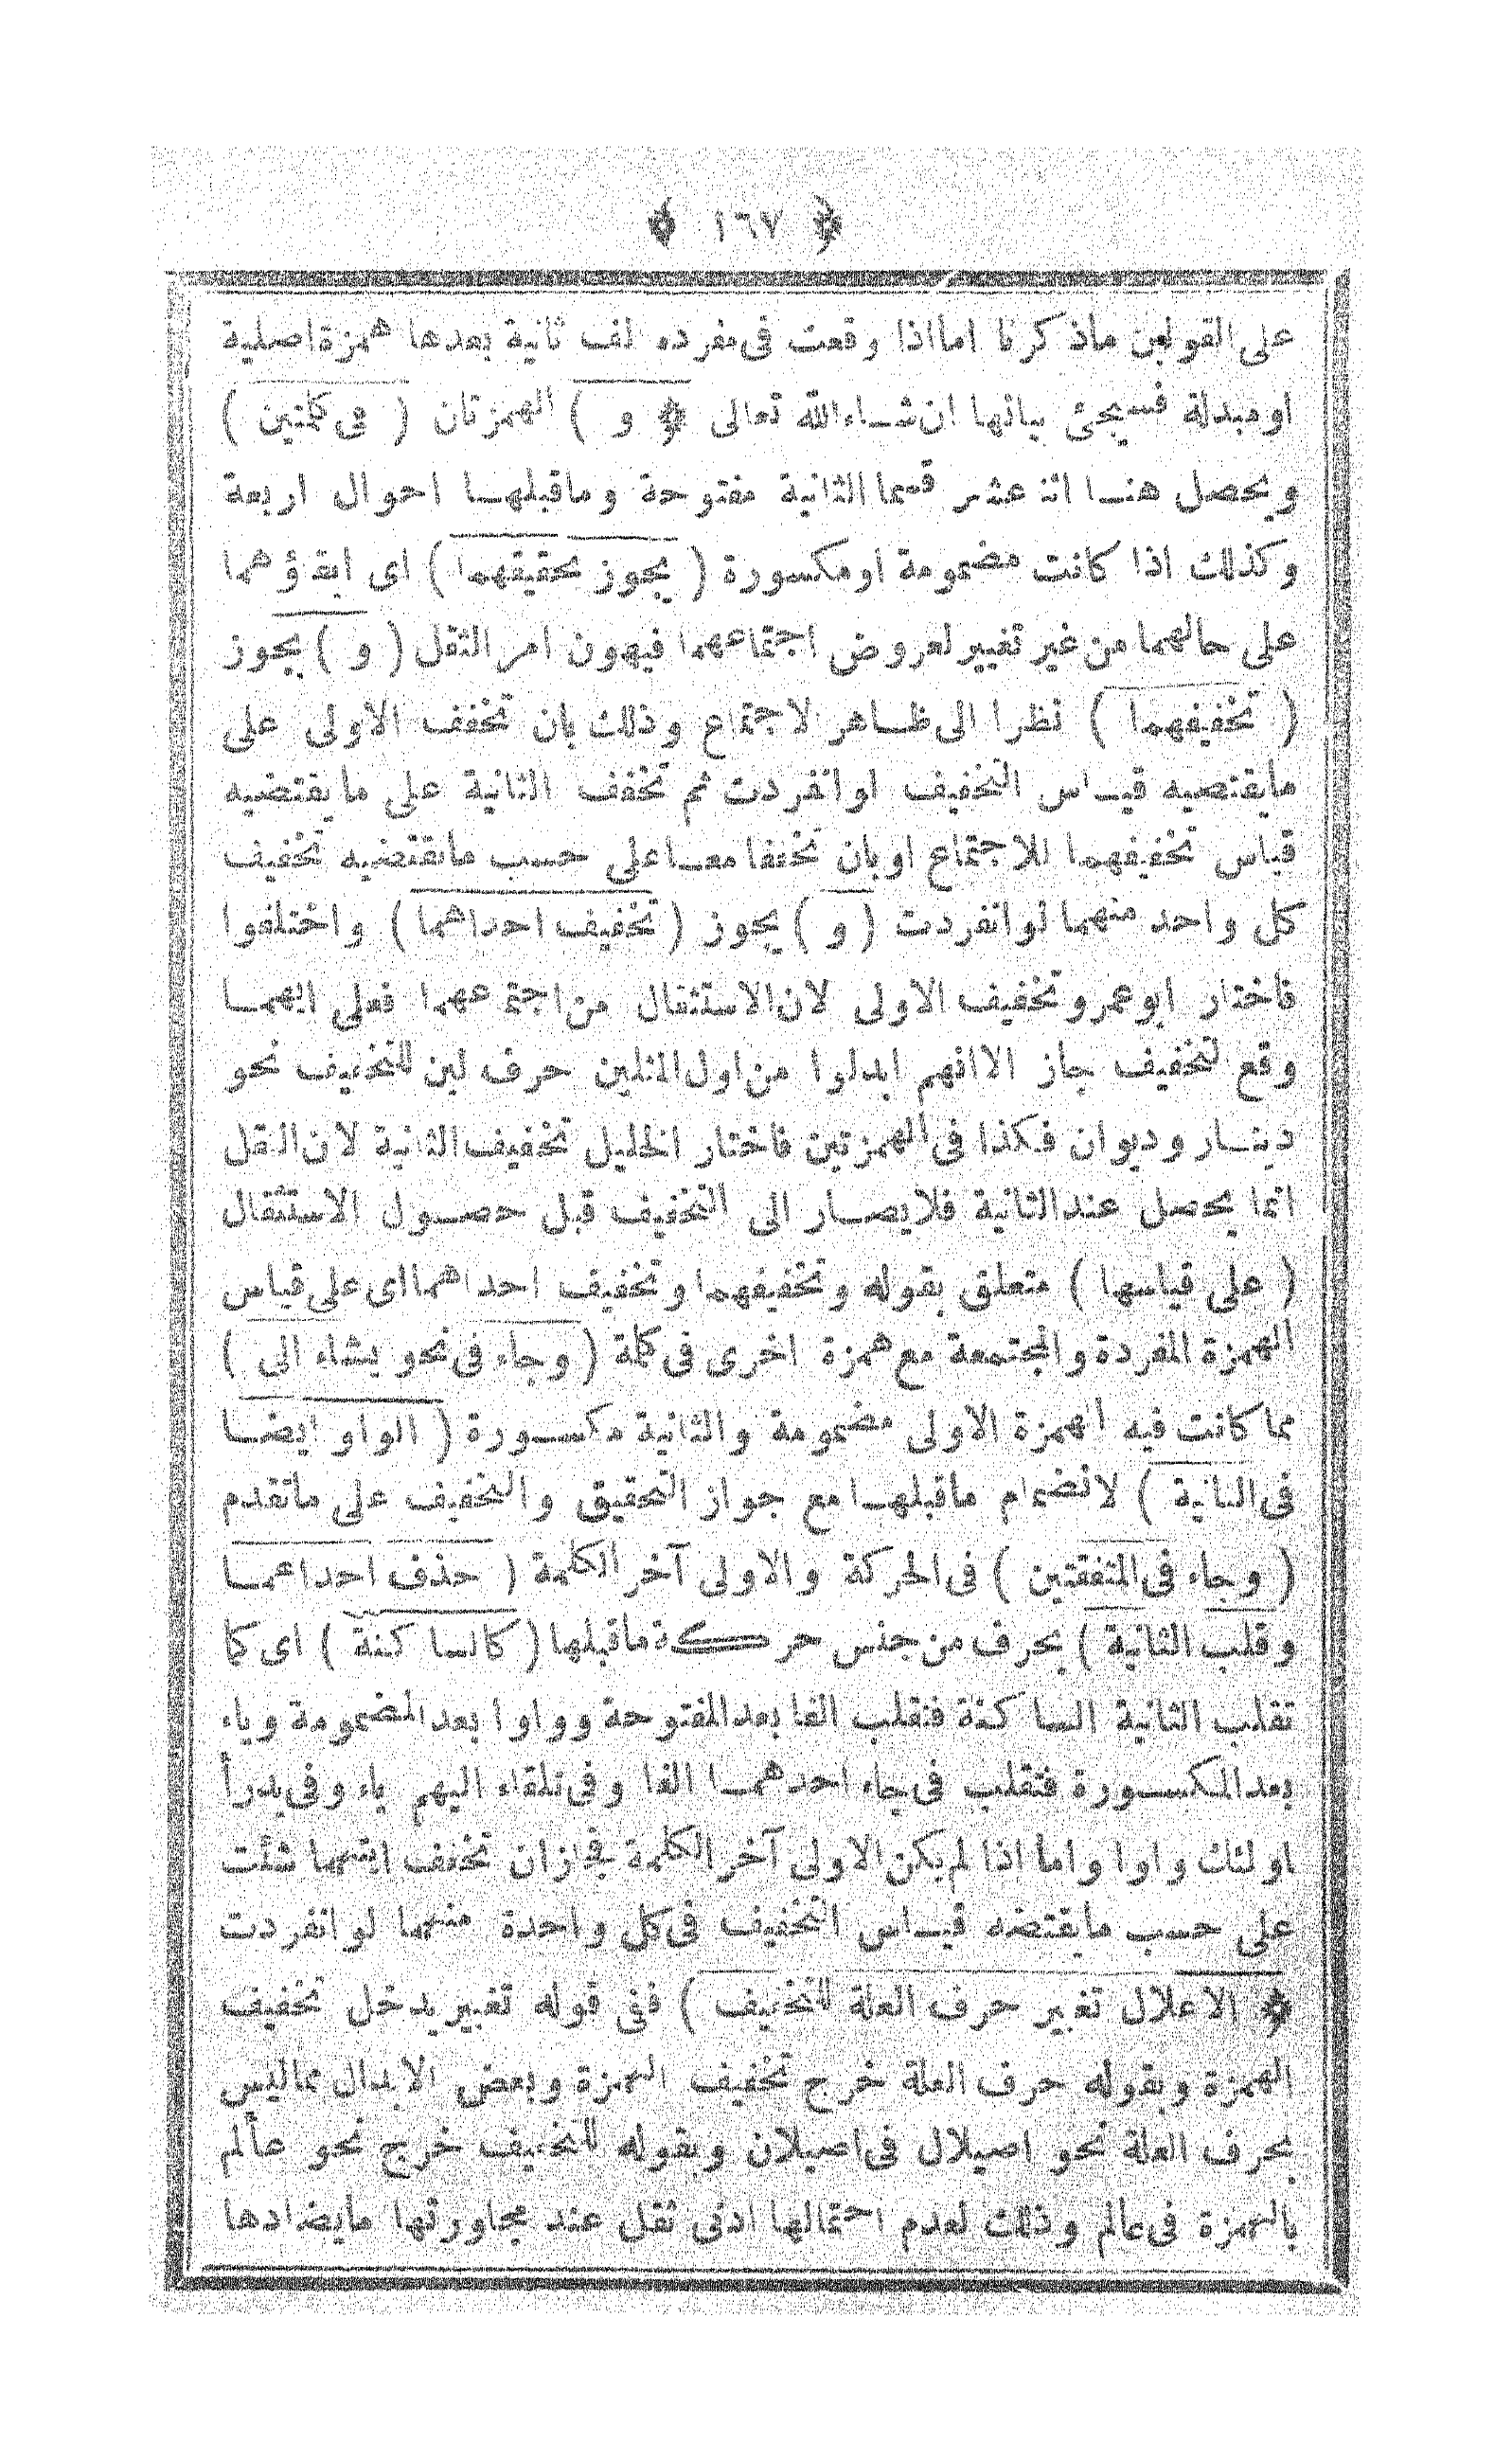 ﴿ ١٦٧ ﴾
على القولين ماذكرنا امااذا وقعت فى مفرده لف ثانية بعدها همزة اصلية
اومبدلة فسيجئ بيانها ان شاء الله تعالى ﴿ و ) الهمزتان ( فى كلمتين )
ويحصل هنا اثنا عشر قسما الثانية مفتوحة وماقبلها احوال اربعة
وكذلك اذا كانت مضمومة اومكسورة ( يجوز تحقيقهما ) اى ابقاؤهما
على حالهما من غير تغيير لعروض اجتماعهما فيهون امر الثقل ( و ) يجوز
( تخفيفهما ) نظرا الى ظاهر لاجتماع وذلك بان تخفف الاولى على
مايقتضيه قياس التخفيف لوانفردت ثم تخفف الثانية على مايقتضيه
قياس تخفيفهما للاجتماع اوبان تخففا معا على حسب مايقتضيه تخفيف
كل واحد منهما لوانفردت ( و ) يجوز ( تخفيف احداهما ) واختلفوا
فاختار ابوعمرو تخفيف الاولى لان الاستثقال من اجتماعهما فعلى ايهما
وقع لتخفيف جاز الا انهم ابدلوا من اول المثلين حرف لين للتخفيف نحو
دينار وديوان فكذا فى الهمزتين فاختار الخليل تخفيف الثانية لان الثقل
انما يحصل عند الثانية فلايصار الى التخفيف قبل حصول الاستثقال
( على قياسها ) متعلق بقوله وتخفيفهما وتخفيف احداهما اى على قياس
الهمزة المفردة والمجتمعة مع همزة اخرى فى كلمة ( وجاء فى نحو يشاء الى )
مما كانت فيه الهمزة الاولى مضمومة والثانية مكسورة ( الواو ايضا
فى الثانية ) لانضمام ماقبلها مع جواز التحقيق والتخفيف على ماتقدم
( وجاء فى المتفقتين ) فى الحركة والاولى آخر الكلمة ( حذف احداهما
وقلب الثانية ) بحرف من جنس حركة ماقبلها ( كالساكنة ) اى كما
تقلب الثانية الساكنة فتقلب الفا بعد المفتوحة وواوا بعد المضمومة وياء
بعد المكسورة فتقلب فى جاء احدهما الفا وفى تلقاء اليهم ياء وفى يدرأ
اولئك واوا واما اذا لم يكن الاولى آخر الكلمة فجاز ان تخفف ايتهما شئت
على حسب مايقتضه قياس التخفيف فى كل واحدة منهما لوانفردت
﴿ الاعلال تغير حرف العلة للتخفيف ) ففى قوله تغيير يدخل تخفيف
الهمزة وبقوله حرف العلة خرج تخفيف الهمزة وبعض الابدال مماليس
بحرف العلة نحو اصيلال فى اصيلان وبقوله للتخفيف خرج نحو عألم
بالهمزة فى عالم وذلك لعدم احتمالها ادنى ثقل عند مجاورتها مايضادها